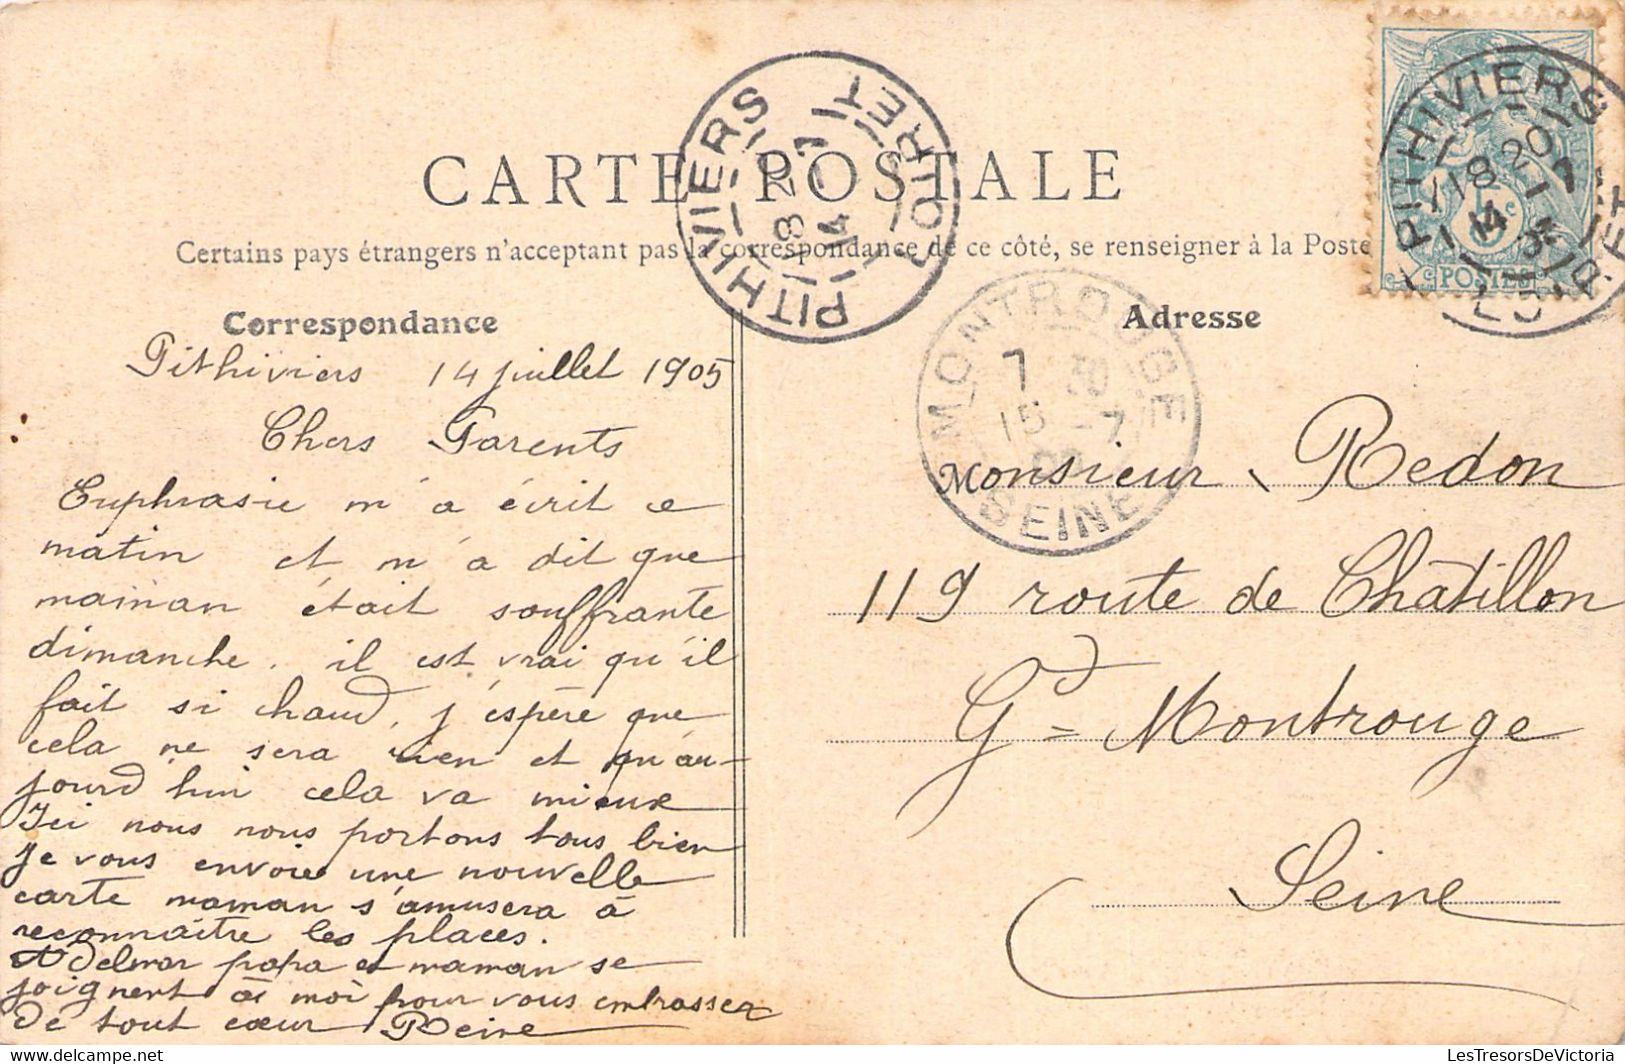 CARTE POSTALE
Certains pays étrangers n'acceptant pas la correspondance de ce côté, se renseigner à la Poste
Correspondance
Pithiviers 14 juillet 1905
Chers Parents
Euphrasie m'a écrit ce
matin et m'a dit que
maman était souffrante
dimanche. il est vrai qu'il
fait si chaud, j'espère que
cela ne sera rien et qu'au-
jourd'hui cela va mieux
Ici nous nous portons tous bien
Je vous envoie une nouvelle
carte maman s'amusera à
reconnaître les places.
Adelmar papa et maman se
joignent à moi pour vous embrasser
de tout cœur Reine
Adresse
Monsieur Redon
119 route de Châtillon
Gd Montrouge
Seine
PITHIVIERS
LOIRET
18 20
14 7
PITHIVIERS
LOIRET
18 20
14 7
05
MONTROUGE
7 30
15 -7
05
SEINE
5c
POSTES
LesTresorsDeVictoria.com